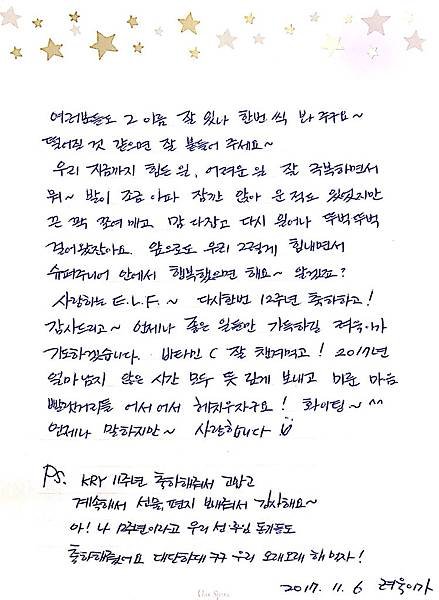 여러분들도 그 이름 잘 있나 한번 씩 봐 주구요~
떨어질 것 같으면 잘 붙들어 주세요~
우리 지금까지 힘든 일, 어려운 일 잘 극복하면서
뭐~ 발이 조금 아파 잠깐 앉아 운 적도 있었지만
끈 꽉 조여매고 맘 다잡고 다시 일어나 뚜벅뚜벅
걸어왔잖아요. 앞으로도 우리 그렇게 힘내면서
슈퍼주니어 안에서 행복했으면 해요~ 알겠죠?
사랑하는 E.L.F.~ 다시한번 12주년 축하하고!
감사드리고~ 언제나 좋은 일들만 가득하길 려욱이가
기도하겠습니다. 비타민 C 잘 챙겨먹고! 2017년
얼마 남지 않은 시간 모두 뜻 깊게 보내고 미룬 마음
빨랫거리들 어서어서 해치우자구요! 화이팅~ ^^
언제나 말하지만~ 사랑합니다
Ps. KRY 11주년 축하해줘서 고맙고
계속해서 선물, 편지 보내줘서 감사해요~
아! 나 12주년이라고 우리 선·후임 동기들도
축하해줬어요 대단하대 ㅋㅋ 우리 오래오래 해 먹자!
2017. 11. 6 려욱이가